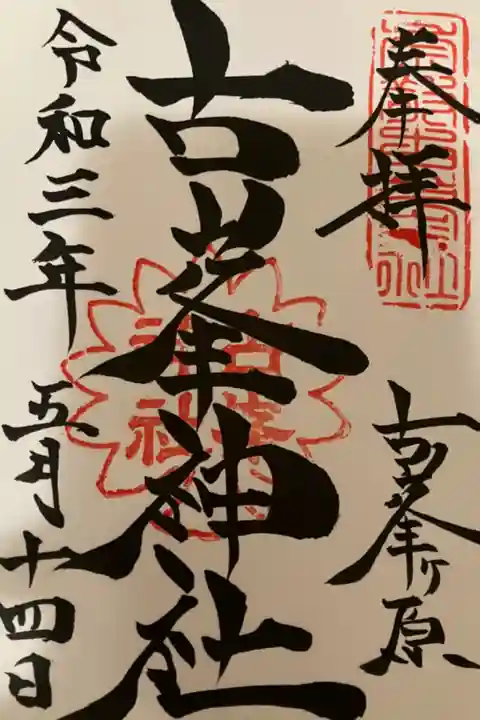 奉拝
古峯ヶ原
古峯神社
古峯神社
令和三年 五月十四日